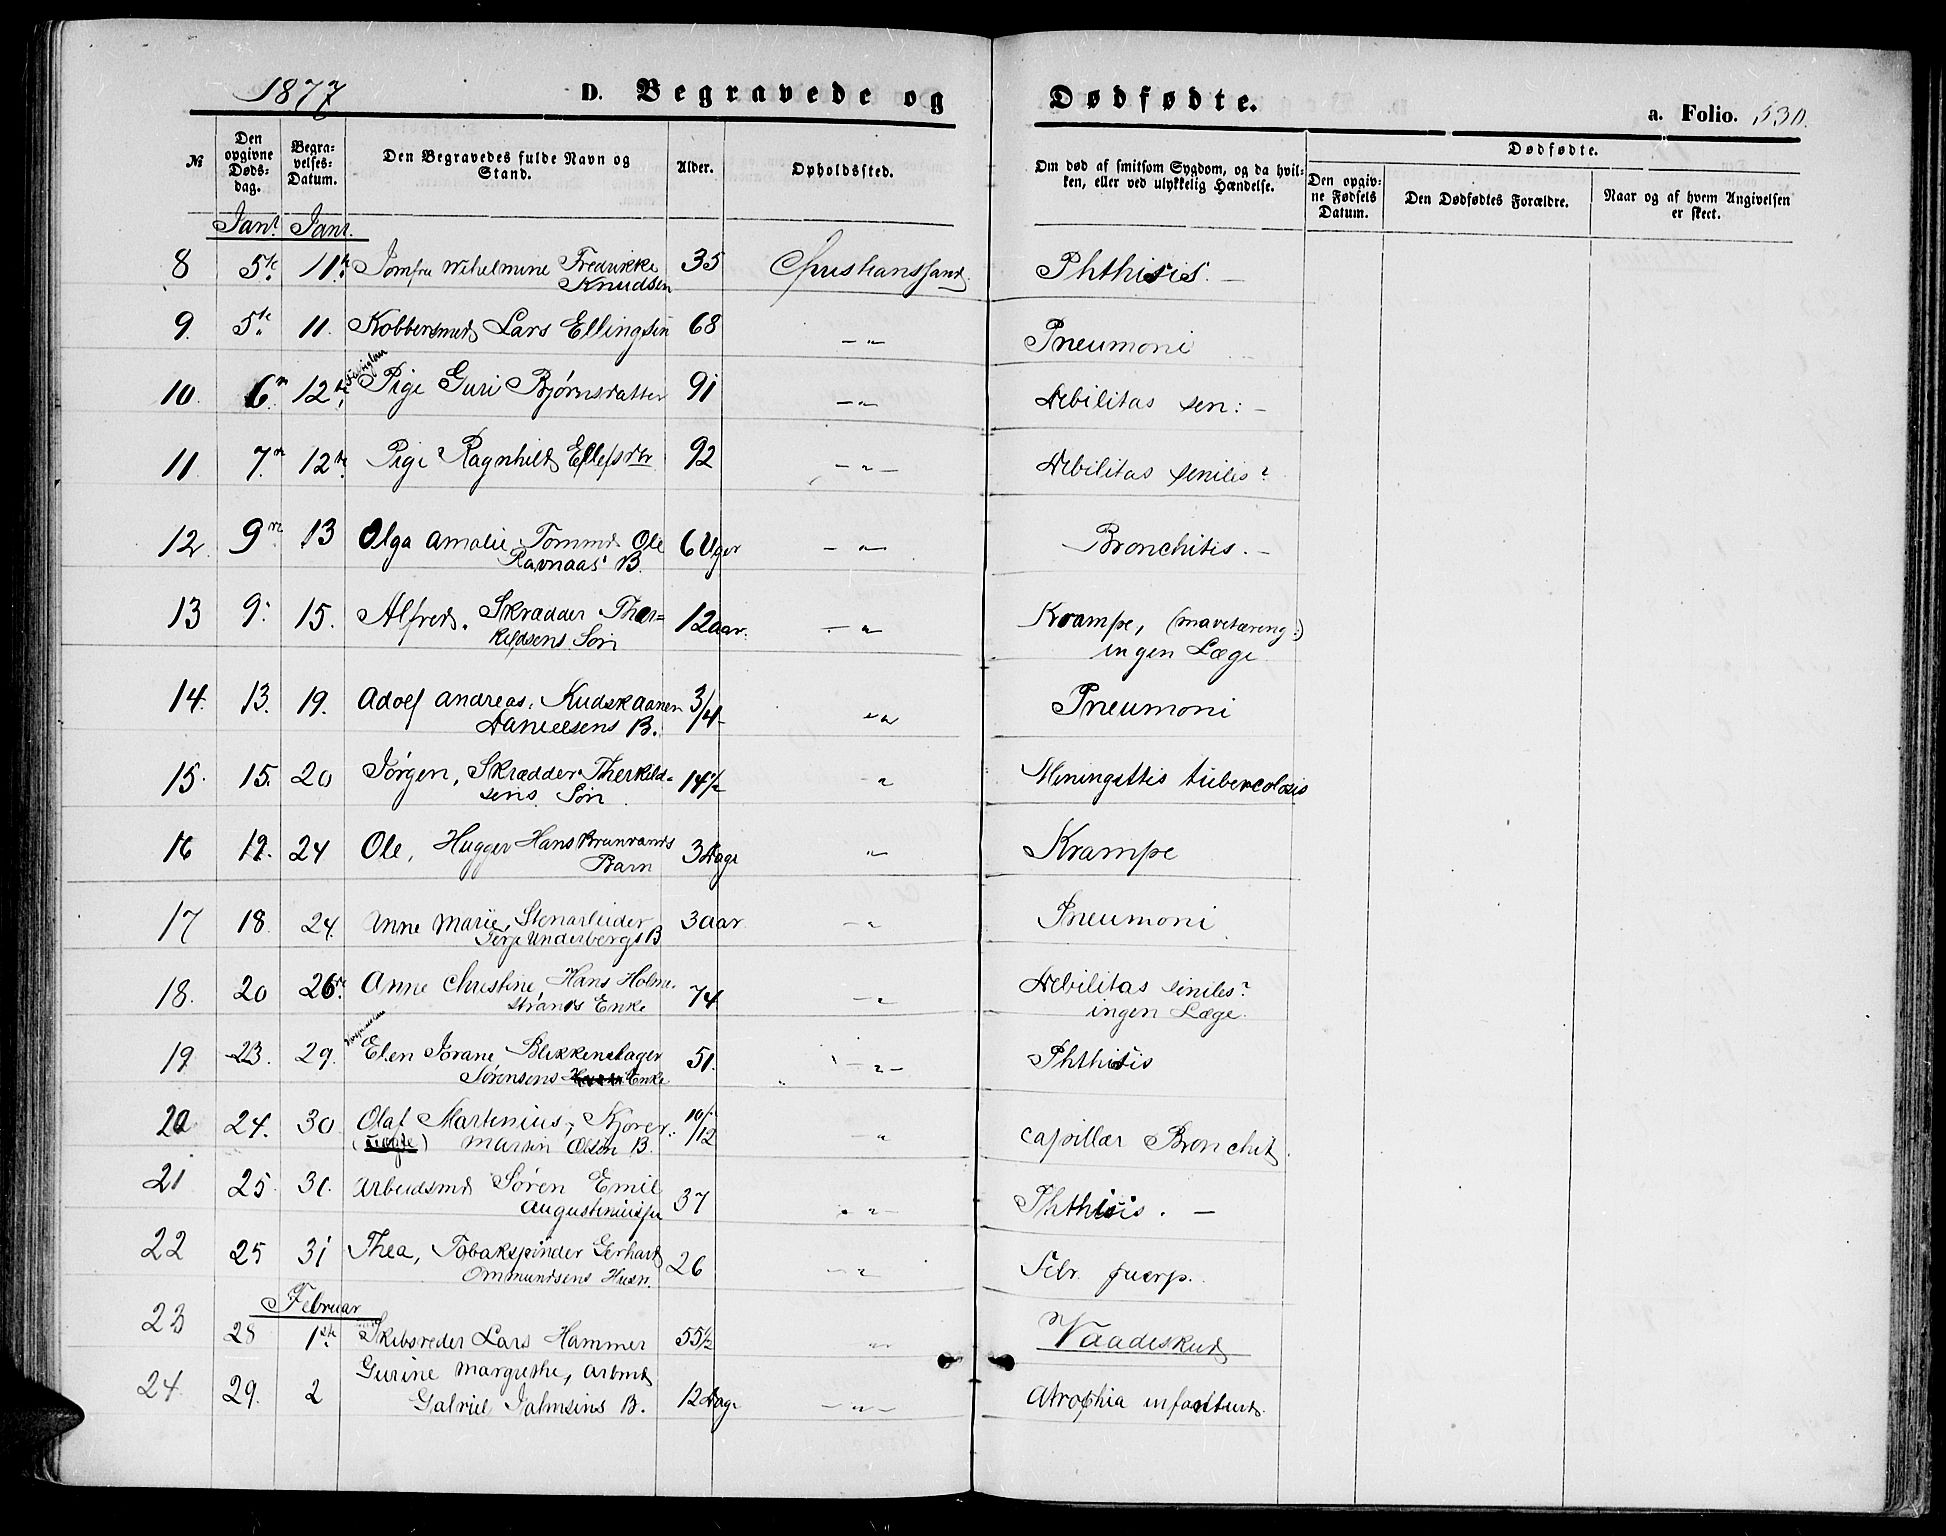 1877
D. Begravede og Dødfødte.
a. Folio. 530.
№
Den opgivne Døds-dag.
Begra-velses-Datum.
Den Begravedes fulde Navn og Stand.
Alder.
Opholdssted.
Om død af smitsom Sygdom, og da hvil-ken, eller ved ulykkelig Hændelse.
Dødfødte.
Den opgiv-ne Fødsels Datum.
Den Dødfødtes Forældre.
Naar og af hvem Angivelsen er skeet.
Janr. Janr.
8 5te 11te Jomfru Wilhelmine Fredrikke 35 Christianssand Phthisis. -
Knudsen
9. 5te 11. Kobbersmed Lars Ellingsen 68 - " Pneumoni
10. 6te 12te Pige Guri Bjørnsdatter 91 - " Debilitas sen: -
11 7de 12te Pige Ragnhild Ellefsdtr 92 - " - Debilitas senilis?
12. 9de 13 Olga Amalie Tømmd Ole 6 Uger - " Bronchitis. -
Ravnaas' B.
13 9. 15. Alfred. Skrædder Ther- 12 aar. - " Krampe, (mavetæreng:)
kildsens Søn ingen Læge
14. 13. 19. Adolf Andreas, Kudskaanen 3/4 - " Pneumoni
Danielsens B.
15. 15. 20 Jørgen, Skrædder Therkild- 14 1/2 " Meningittis tubercolosis
sens Søn
16 19. 24 Ole, Hugger Hans Brunvands 3 Dage " Krampe
Barn
17 18. 24. Anne Marie, Stenarbeider 3 aar - " Pneumoni
Terje Underbergs B
18. 20 26de Anne Christine, Hans Holm- 74 - " Debilitas senilis?
strands Enke ingen Læge.
19. 23. 29. Elen Jorane Blikkenslager 51. - " - Phthisis
Sørensens Enke
20 24. 30. Olaf Martinius, Kjører 10/12 - " capillær Bronchit.
Martin Olsen B.
21 25. 31. Arbeidsmd Søren Emil 37 - " Phthisis. -
Augustiniusen
22 25 31 Thea, Tobakspinder Gerhard 26 - " Febr. puerp.
Ommundsens Husr.
Februar
23 28 1ste Skibsreder Lars Hammer 55 1/2 " Vaadeskud
24. 29. 2 Gurine Margrethe, Arbmd
Gabriel Salmsens B. 12 Dage - " - Atrophia infantum.